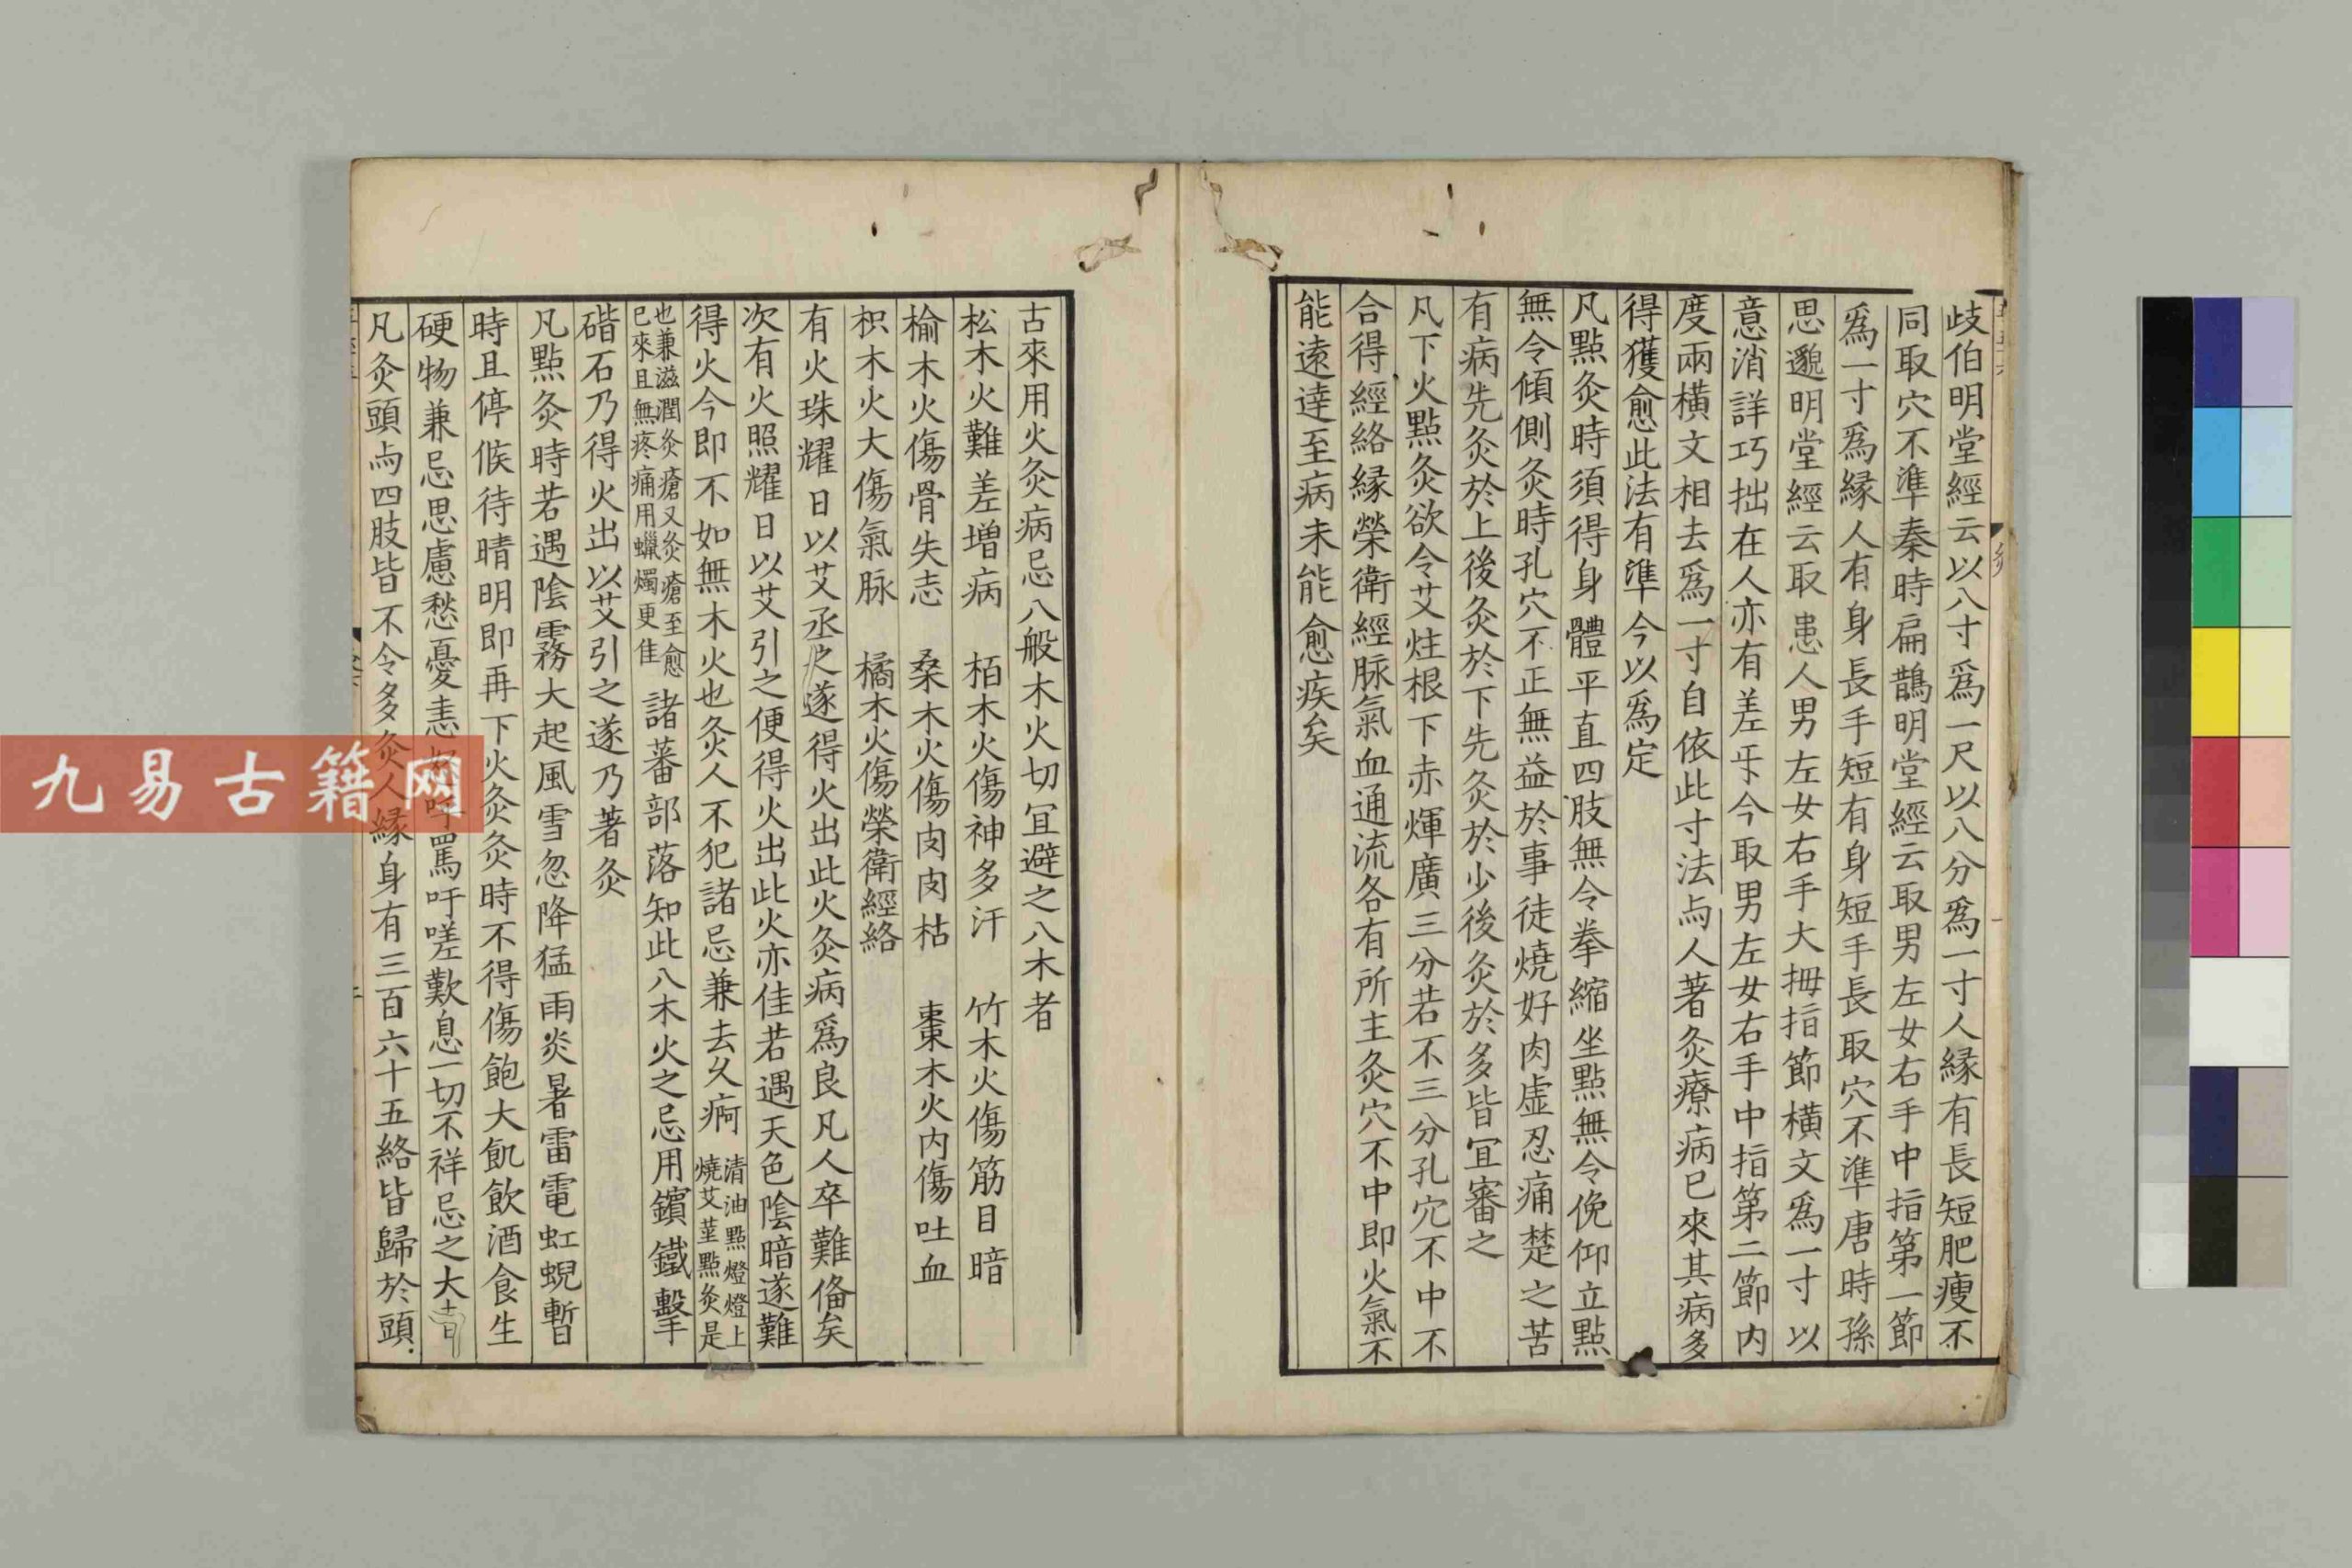 歧伯明堂經云以八寸爲一尺以八分爲一寸人縁有長短肥瘦不
同取穴不準秦時扁鵲明堂經云取男左女右手中指第一節
爲一寸爲縁人有身長手短有身短手長取穴不準唐時孫
思邈明堂經云取患人男左女右手大拇指節橫文爲一寸以
意消詳巧拙在人亦有差㸦今取男左女右手中指第二節内
度兩橫文相去爲一寸自依此寸法与人著灸療病已來其病多
得獲愈此法有準今以爲定
凡點灸時須得身體平直四肢無令拳縮坐點無令俛仰立點
無令傾側灸時孔穴不正無益於事徒燒好肉虛忍痛楚之苦
有病先灸於上後灸於下先灸於少後灸於多皆宜審之
凡下火點灸欲令艾炷根下赤煇廣三分若不三分孔穴不中不
合得經絡縁榮衛經脉氣血通流各有所主灸穴不中即火氣不
能遠達至病未能愈疾矣
古來用火灸病忌八般木火切宜避之八木者
松木火難差増病 栢木火傷神多汗 竹木火傷筋目暗
榆木火傷骨失志 桑木火傷肉肉枯 棗木火内傷吐血
枳木火大傷氣脉 橘木火傷榮衛經絡
有火珠耀日以艾丞之遂得火出此火灸病爲良凡人卒難俻矣
次有火照耀日以艾引之便得火出此火亦佳若遇天色陰暗遂難
得火今即不如無木火也灸人不犯諸忌兼去久痾 清油點燈燈上燒艾莖點灸是
也兼滋潤灸瘡又灸瘡至愈已來且無疼痛用蠟燭更佳 諸蕃部落知此八木火之忌用鑌鐵擊
碏石乃得火出以艾引之遂乃著灸
凡點灸時若遇陰霧大起風雪忽降猛雨炎暑雷電虹蜺暫
時且停候待晴明即再下火灸灸時不得傷飽大飢飲酒食生
硬物兼忌思慮愁憂恚怒呼罵吁嗟歎息一切不祥忌之大吉
凡灸頭与四肢皆不令多灸人縁身有三百六十五絡皆歸於頭
九易古籍网